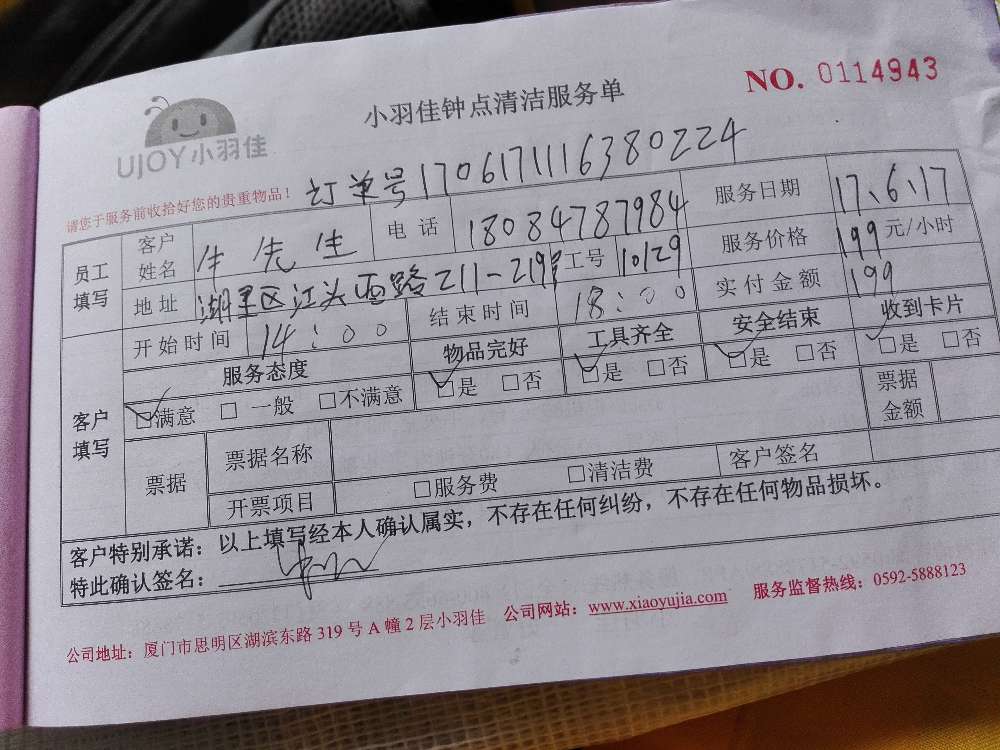 UJOY小羽佳
小羽佳钟点清洁服务单
NO. 0114943
请您于服务前收拾好您的贵重物品！
订单号1706171116380224
员工填写 客户姓名 牛先生 电话 18084787984 服务日期 17、6、17
地址 湖里区江头西路211-219号 工号 10129 服务价格 199元/小时
开始时间 14:00 结束时间 18:00 实付金额 199
客户填写 服务态度 物品完好 工具齐全 安全结束 收到卡片
☑满意 □ 一般 □不满意 ☑是 □否 ☑是 □否 ☑是 □否 ☑是 □否
票据 票据名称 票据金额
开票项目 □服务费 □清洁费 客户签名
客户特别承诺：以上填写经本人确认属实，不存在任何纠纷，不存在任何物品损坏。
特此确认签名：
公司地址：厦门市思明区湖滨东路319号A幢2层小羽佳 公司网站：www.xiaoyujia.com 服务监督热线：0592-5888123